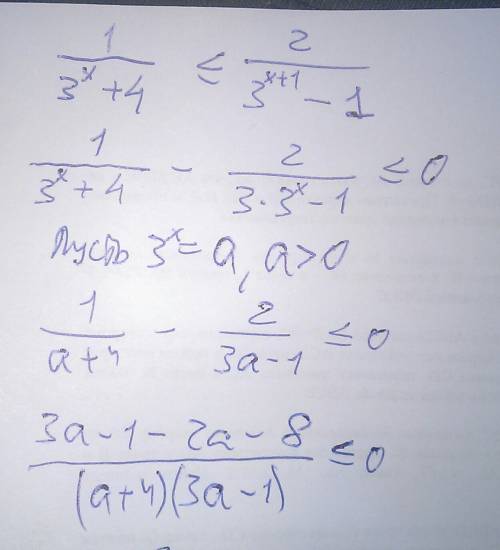 1/(3^x + 4) ≤ 2/(3^(x+1) - 1)
1/(3^x + 4) - 2/(3·3^x - 1) ≤ 0
Пусть 3^x = a, a > 0
1/(a+4) - 2/(3a-1) ≤ 0
(3a - 1 - 2a - 8)/((a+4)(3a-1)) ≤ 0